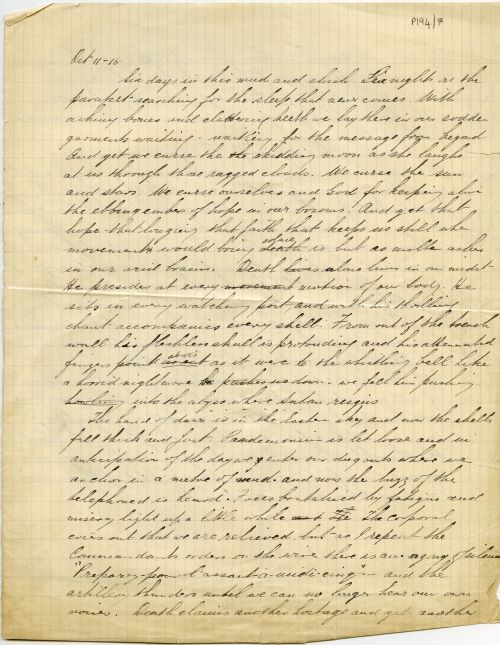 P194/7
Oct 11-16
Six days in this mud and slush. Six nights on the
parapet searching for the sleep that never comes. With
aching bones and chattering teeth we lay there in our sodden
garments waiting - waiting for the message from
And yet we curse the the skidding moon as she laughs
at us through those ragged clouds. We curse the sun
and stars. We curse ourselves and God for keeping alive
the ebbing embers of hope in our bosoms. And yet that
hope - that longing that faith that keeps us still when
movement would bring death is but as molten ashes
in our arid brains. Death lives alone lives in our midst
He presides at every movement motion of our body. He
sits in every watching post and with his thrilling
chant accompanies every shell. From out of the trench
wall his fleshless skull is protruding and his attenuated
fingers point as it were to the whistling ball Like
a horrid nightmare he pushes us down - we feel him pushing
into the abyss where Satan reigns
The hand of dawn is in the eastern sky and now the shells
fall thick and fast. Pandemonium is let loose and in
anticipation of the day we enter our dugouts where we
anchor in a metre of mud - and now the buzz of the
telephone is heard. Faces brutalised by fatigue and
misery light up a little while The corporal
cries out that we are relieved but as I repeat the
Commandants orders on the wire there is an agony of silence
"Preparez pour l'assaut a midi cinq" - and the
artillery thunders until we can no longer hear our own
voices. Death claims another hostage and yet another